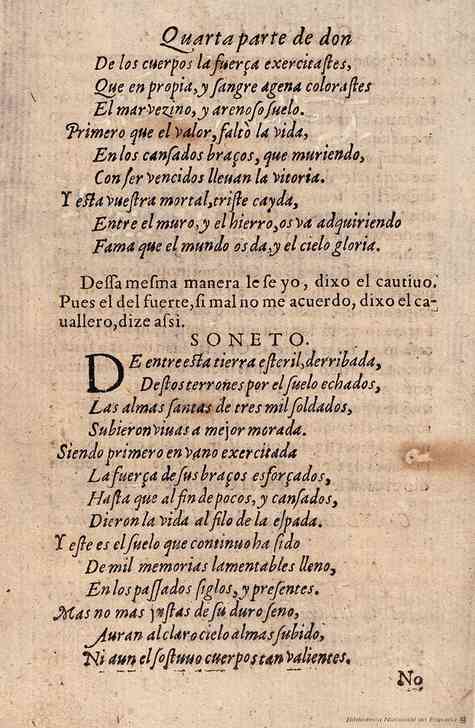 Quarta parte de don
De los cuerpos la fuerça exercitaſtes,
Que en propia, y ſangre agena coloraſtes
El mar vezino, y arenoſo ſuelo.
Primero que el valor, faltò la vida,
En los canſados braços, que muriendo,
Con ſer vencidos lleuan la vitoria.
Y eſta vueſtra mortal, triſte cayda,
Entre el muro, y el hierro, os va adquiriendo
Fama que el mundo os da, y el cielo gloria.
Deſſa meſma manera le ſe yo, dixo el cautiuo.
Pues el del fuerte, ſi mal no me acuerdo, dixo el ca-
uallero, dize aſsi.
SONETO.
DE entre eſta tierra eſteril, derribada,
Deſtos terrones por el ſuelo echados,
Las almas ſantas de tres mil ſoldados,
Subieron viuas a mejor morada.
Siendo primero en vano exercitada
La fuerça de ſus braços esforçados,
Haſta que al fin de pocos, y canſados,
Dieron la vida al filo de la eſpada.
Y eſte es el ſuelo que continuo ha ſido
De mil memorias lamentables lleno,
En los paſſados ſiglos, y preſentes.
Mas no mas juſtas de ſu duro ſeno,
Auran al claro cielo almas ſubido,
Ni aun el ſoſtuuo cuerpos tan valientes.
No
Biblioteca Nacional de España